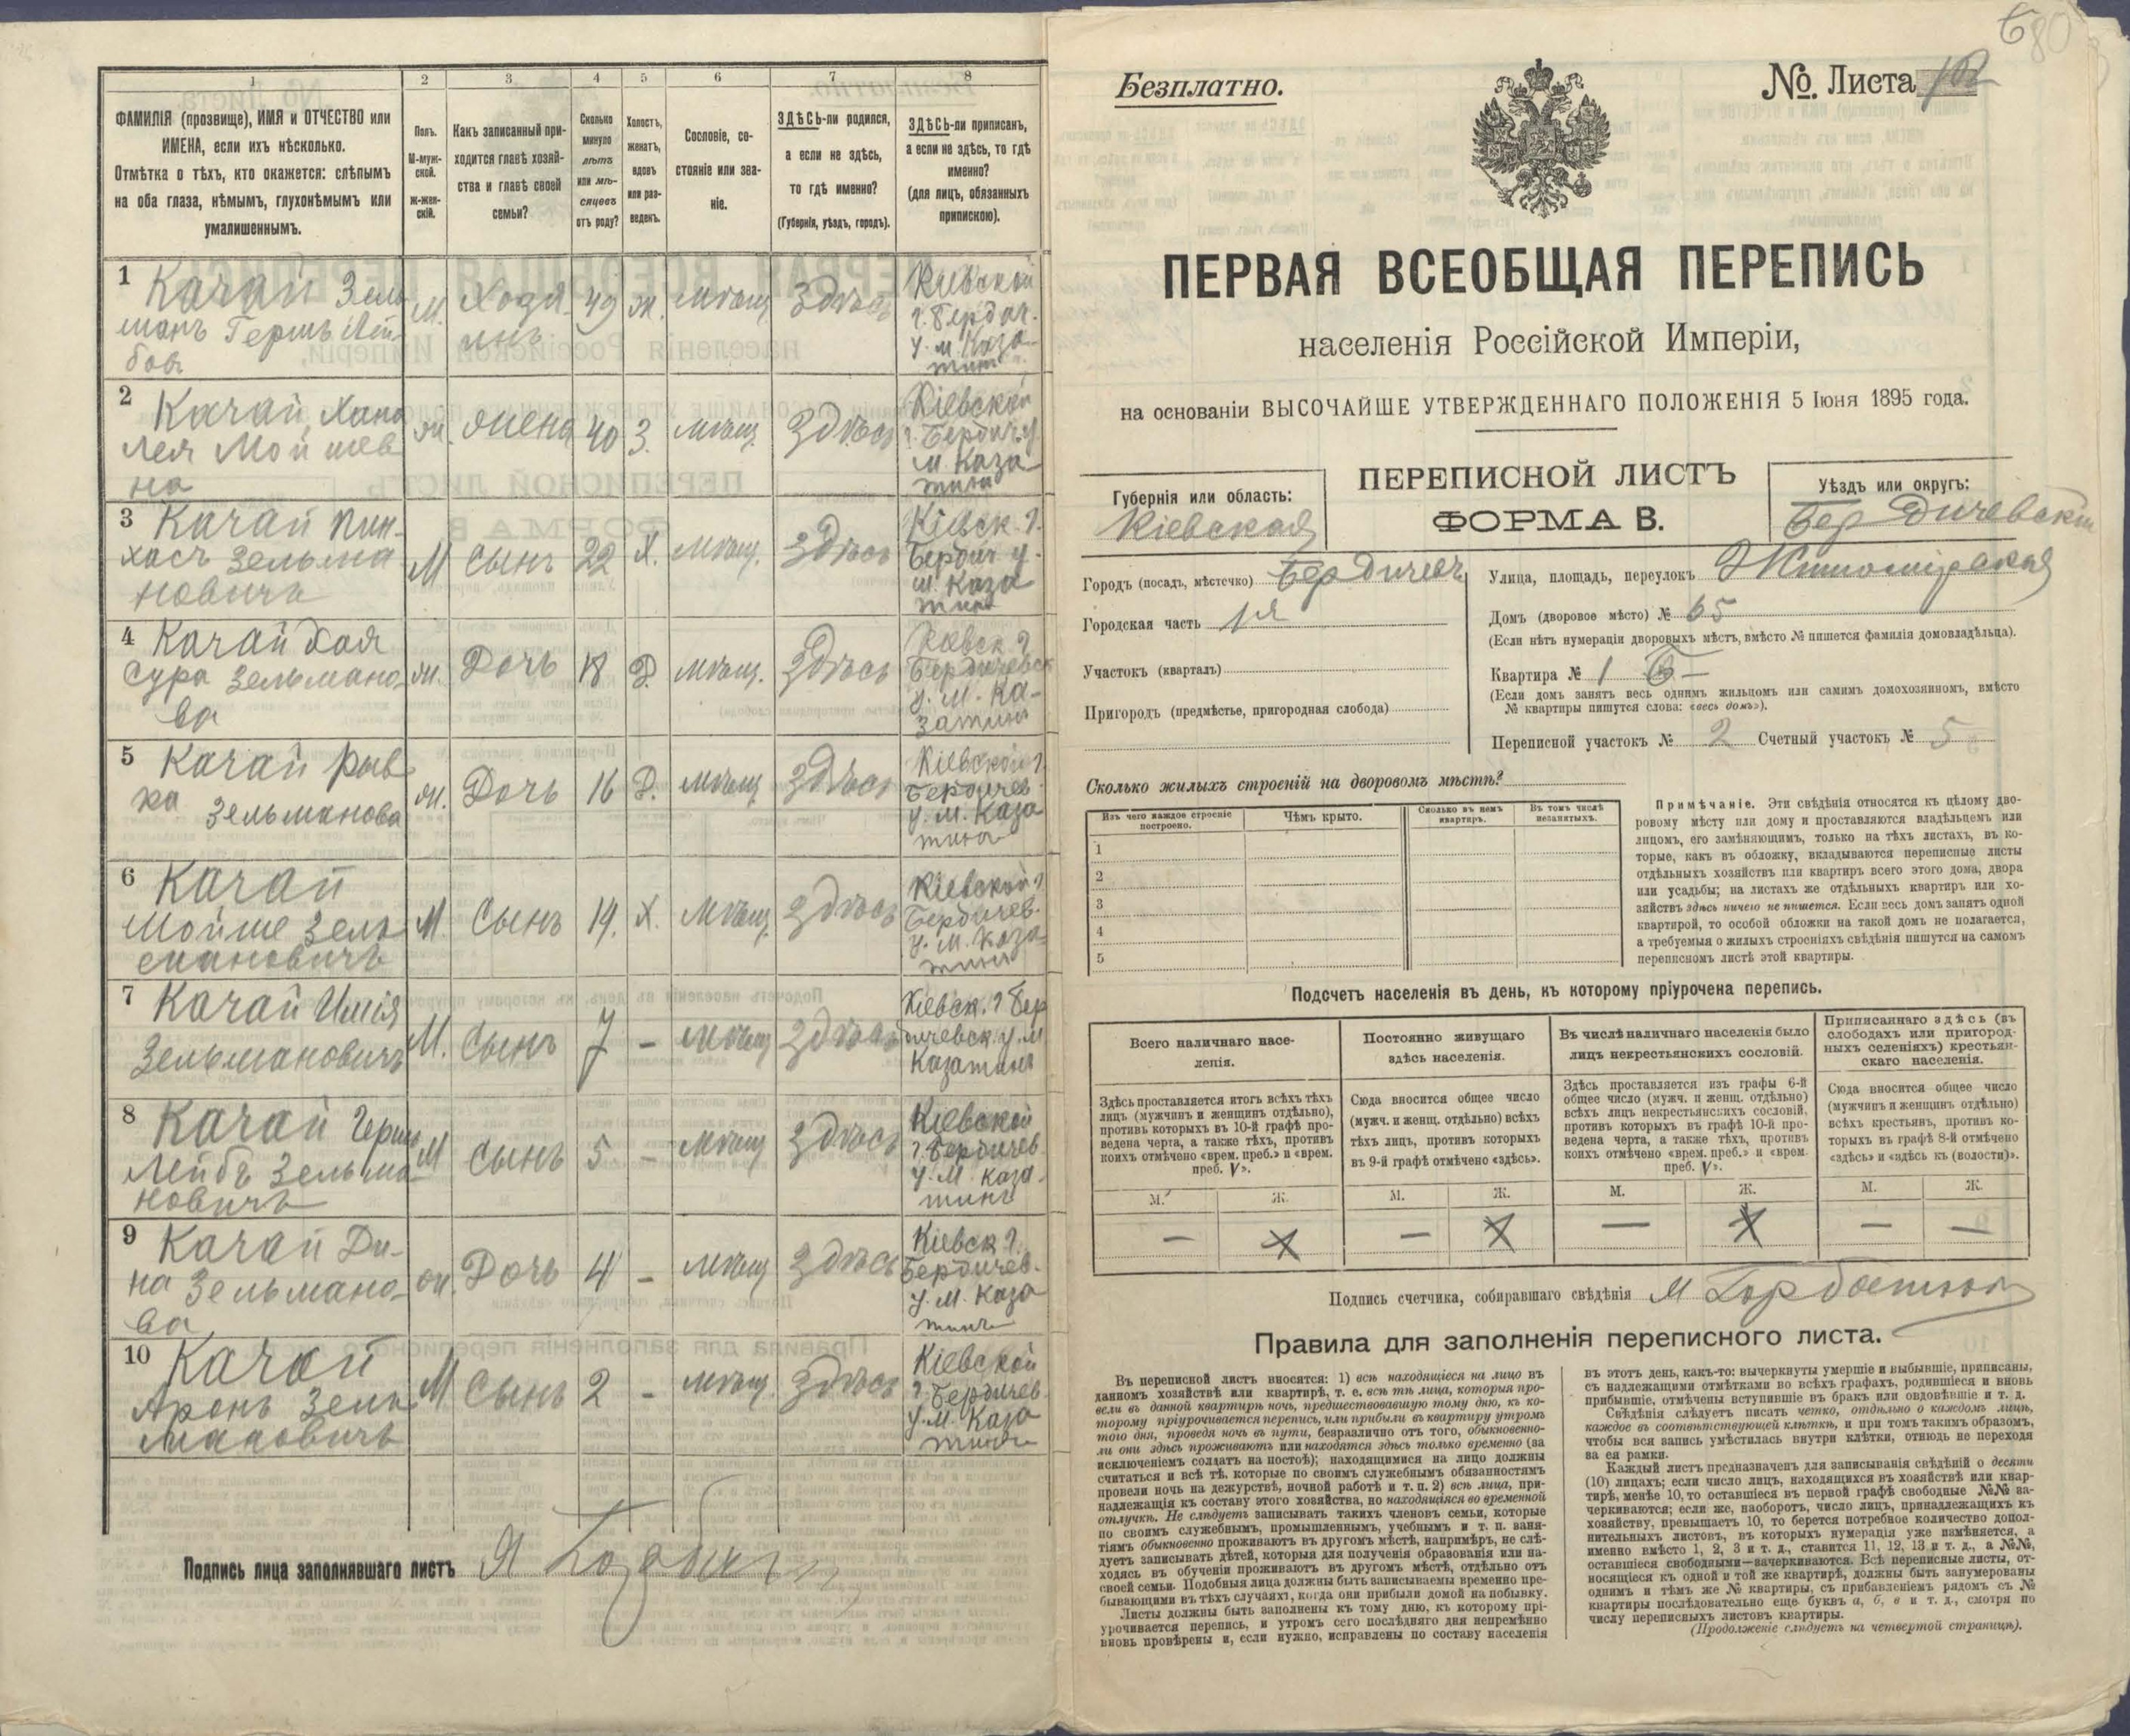 1
2
3
4
5
6
7
8
ФАМИЛІЯ (прозвище), ИМЯ и ОТЧЕСТВО или
ИМЕНА, если ихъ нѣсколько.
Отмѣтка о тѣхъ, кто окажется: слѣпымъ
на оба глаза, нѣмымъ, глухонѣмымъ или
умалишеннымъ.
Полъ.
М-муж-
ской.
ж-жен-
скій.
Какъ записанный при-
ходится главѣ хозяй-
ства и главѣ своей
семьи?
Сколько
минуло
лѣтъ
или мѣ-
сяцевъ
отъ роду?
Холостъ,
женатъ,
вдовъ
или раз-
веденъ.
Сословіе, со-
стояніе или зва-
ніе.
ЗДѢСЬ-ли родился,
а если не здѣсь,
то гдѣ именно?
(Губернія, уѣздъ, городъ).
ЗДѢСЬ-ли приписанъ,
а если не здѣсь, то гдѣ
именно?
(для лицъ, обязанныхъ
припискою).
1 Качай Зель
манъ Гершъ Лей
бовъ
М.
Хозя
инъ
49
ж.
мѣщ.
Здѣсь
Кіевской
г. Бердич.
у. м. Каза
тинъ
2 Качай Хана
Лея Мойшев
на
ж.
жена
40
З.
мѣщ.
Здѣсь
Кіевской
г. Бердич. у.
м. Каза
тина
3 Качай Пин-
хасъ Зельма
новичъ
М
Сынъ
22
Х.
мѣщ.
Здѣсь
Кіевск. г.
Бердич. у.
м. Каза
тинъ
4 Качай Хая
Сура Зельмано-
ва
ж.
Дочь
18
Д.
мѣщ.
Здѣсь
Кіевск. г.
Бердичевск
у. м. Ка-
затинъ
5 Качай Рыв
ка Зельманова
ж.
Дочь
16
Д.
мѣщ.
Здѣсь
Кіевской г.
Бердичев.
у. м. Каза
тина
6 Качай
Мойше Зель
мановичъ
М.
Сынъ
14.
Х.
мѣщ.
Здѣсь
Кіевской г.
Бердичев.
у. м. Каза-
тинъ
7 Качай
Зельмановичъ
М.
Сынъ
7
-
мѣщ.
Здѣсь
Кіевск. г. Бер
дичевск. у. м.
Казатинъ
8 Качай Гершъ
Лейбъ Зельма-
новичъ
М
Сынъ
5
-
мѣщ.
Здѣсь
Кіевской
г. Бердичев.
у. м. Каза-
тинъ
9 Качай Ди-
на Зельмано-
ва
ж.
Дочь
4
-
мѣщ.
Здѣсь
Кіевск. г.
Бердичев.
у. м. Каза
тинъ
10 Качай
Аронъ Зель
мановичъ
М
Сынъ
2
-
мѣщ.
Здѣсь
Кіевской
г. Бердичев.
у. м. Каза
тинъ
Подпись лица заполнявшаго листъ
680
Безплатно.
№. Листа 162
ПЕРВАЯ ВСЕОБЩАЯ ПЕРЕПИСЬ
населенія Россійской Имперіи,
на основаніи ВЫСОЧАЙШЕ УТВЕРЖДЕННАГО ПОЛОЖЕНІЯ 5 Іюня 1895 года.
Губернія или область:
Кіевская
ПЕРЕПИСНОЙ ЛИСТЪ
ФОРМА В.
Уѣздъ или округъ:
Бердичевскій
Городъ (посадъ, мѣстечко) Бердичевъ
Городская часть 1я
Участокъ (кварталъ)
Пригородъ (предмѣстье, пригородная слобода)
Улица, площадь, переулокъ Житомірская
Домъ (дворовое мѣсто) № 65
(Если нѣтъ нумераціи дворовыхъ мѣстъ, вмѣсто № пишется фамилія домовладѣльца).
Квартира № 1
(Если домъ занятъ весь однимъ жильцомъ или самимъ домохозяиномъ, вмѣсто
№ квартиры пишутся слова: «весь домъ»).
Переписной участокъ № 2 Счетный участокъ № 5
Сколько жилыхъ строеній на дворовомъ мѣстѣ?
Изъ чего каждое строеніе
построено.
Чѣмъ крыто.
Сколько въ немъ
квартиръ.
Въ томъ числѣ
незанятыхъ.
1
2
3
4
5
Примѣчаніе. Эти свѣдѣнія относятся къ цѣлому дво-
ровому мѣсту или дому и проставляются владѣльцемъ или
лицомъ, его замѣняющимъ, только на тѣхъ листахъ, въ ко-
торые, какъ въ обложку, вкладываются переписные листы
отдѣльныхъ хозяйствъ или квартиръ всего этого дома, двора
или усадьбы; на листахъ же отдѣльныхъ квартиръ или хо-
зяйствъ здѣсь ничего не пишется. Если весь домъ занятъ одной
квартирой, то особой обложки на такой домъ не полагается,
а требуемыя о жилыхъ строеніяхъ свѣдѣнія пишутся на самомъ
переписномъ листѣ этой квартиры.
Подсчетъ населенія въ день, къ которому пріурочена перепись.
Всего наличнаго насе-
ленія.
Постоянно живущаго
здѣсь населенія.
Въ числѣ наличнаго населенія было
лицъ некрестьянскихъ сословій.
Приписаннаго здѣсь (въ
слободахъ или пригород-
ныхъ селеніяхъ) крестьян-
скаго населенія.
Здѣсь проставляется итогъ всѣхъ тѣхъ
лицъ (мужчинъ и женщинъ отдѣльно),
противъ которыхъ въ 10-й графѣ про-
ведена черта, а также тѣхъ, противъ
коихъ отмѣчено «врем. преб.» и «врем.
преб. V».
Сюда вносится общее число
(мужч. и женщ. отдѣльно) всѣхъ
тѣхъ лицъ, противъ которыхъ
въ 9-й графѣ отмѣчено «здѣсь».
Здѣсь проставляется изъ графы 6-й
общее число (мужч. и женщ. отдѣльно)
всѣхъ лицъ некрестьянскихъ сословій,
противъ которыхъ въ графѣ 10-й про-
ведена черта, а также тѣхъ, противъ
коихъ отмѣчено «врем. преб.» и «врем.
преб. V».
Сюда вносится общее число
(мужчинъ и женщинъ отдѣльно)
всѣхъ крестьянъ, противъ ко-
торыхъ въ графѣ 8-й отмѣчено
«здѣсь» и «здѣсь къ (волости)».
М. Ж. М. Ж. М. Ж. М. Ж.
— X — X — X — —
Подпись счетчика, собиравшаго свѣдѣнія М
Правила для заполненія переписного листа.
Въ переписной листъ вносятся: 1) всѣ находящіеся на лицо въ
данномъ хозяйствѣ или квартирѣ, т. е. всѣ тѣ лица, которыя про-
вели въ данной квартирѣ ночь, предшествовавшую тому дню, къ ко-
торому пріурочивается перепись, или прибыли въ квартиру утромъ
того дня, проведя ночь въ пути, безразлично отъ того, обыкновенно-
ли они здѣсь проживаютъ или находятся здѣсь только временно (за
исключеніемъ солдатъ на постоѣ); находящимися на лицо должны
считаться и всѣ тѣ, которые по своимъ служебнымъ обязанностямъ
провели ночь на дежурствѣ, ночной работѣ и т. п. 2) всѣ лица, при-
надлежащія къ составу этого хозяйства, но находящіяся во временной
отлучкѣ. Не слѣдуетъ записывать такихъ членовъ семьи, которые
по своимъ служебнымъ, промышленнымъ, учебнымъ и т. п. заня-
тіямъ обыкновенно проживаютъ въ другомъ мѣстѣ, напримѣръ, не слѣ-
дуетъ записывать дѣтей, которыя для полученія образованія или на-
ходясь въ обученіи проживаютъ въ другомъ мѣстѣ, отдѣльно отъ
своей семьи. Подобныя лица должны быть записываемы временно пре-
бывающими въ тѣхъ случаяхъ, когда они прибыли домой на побывку.
Листы должны быть заполнены къ тому дню, къ которому прі-
урочивается перепись, и утромъ сего послѣдняго дня непремѣнно
вновь провѣрены и, если нужно, исправлены по составу населенія
въ этотъ день, какъ-то: вычеркнуты умершіе и выбывшіе, приписаны,
съ надлежащими отмѣтками во всѣхъ графахъ, родившіеся и вновь
прибывшіе, отмѣчены вступившіе въ бракъ или овдовѣвшіе и т. д.
Свѣдѣнія слѣдуетъ писать четко, отдѣльно о каждомъ лицѣ,
каждое въ соотвѣтствующей клѣткѣ, и при томъ такимъ образомъ,
чтобы вся запись умѣстилась внутри клѣтки, отнюдь не переходя
за ея рамки.
Каждый листъ предназначенъ для записыванія свѣдѣній о десяти
(10) лицахъ; если число лицъ, находящихся въ хозяйствѣ или квар-
тирѣ, менѣе 10, то оставшіеся въ первой графѣ свободные №№ за-
черкиваются; если же, наоборотъ, число лицъ, принадлежащихъ къ
хозяйству, превышаетъ 10, то берется потребное количество допол-
нительныхъ листовъ, въ которыхъ нумерація уже измѣняется, а
именно вмѣсто 1, 2, 3 и т. д., ставится 11, 12, 13 и т. д., а №№,
оставшіеся свободными—зачеркиваются. Всѣ переписные листы, от-
носящіеся къ одной и той же квартирѣ, должны быть занумерованы
однимъ и тѣмъ же № квартиры, съ прибавленіемъ рядомъ съ №
квартиры послѣдовательно еще буквъ а, б, в и т. д., смотря по
числу переписныхъ листовъ квартиры.
(Продолженіе слѣдуетъ на четвертой страницѣ).